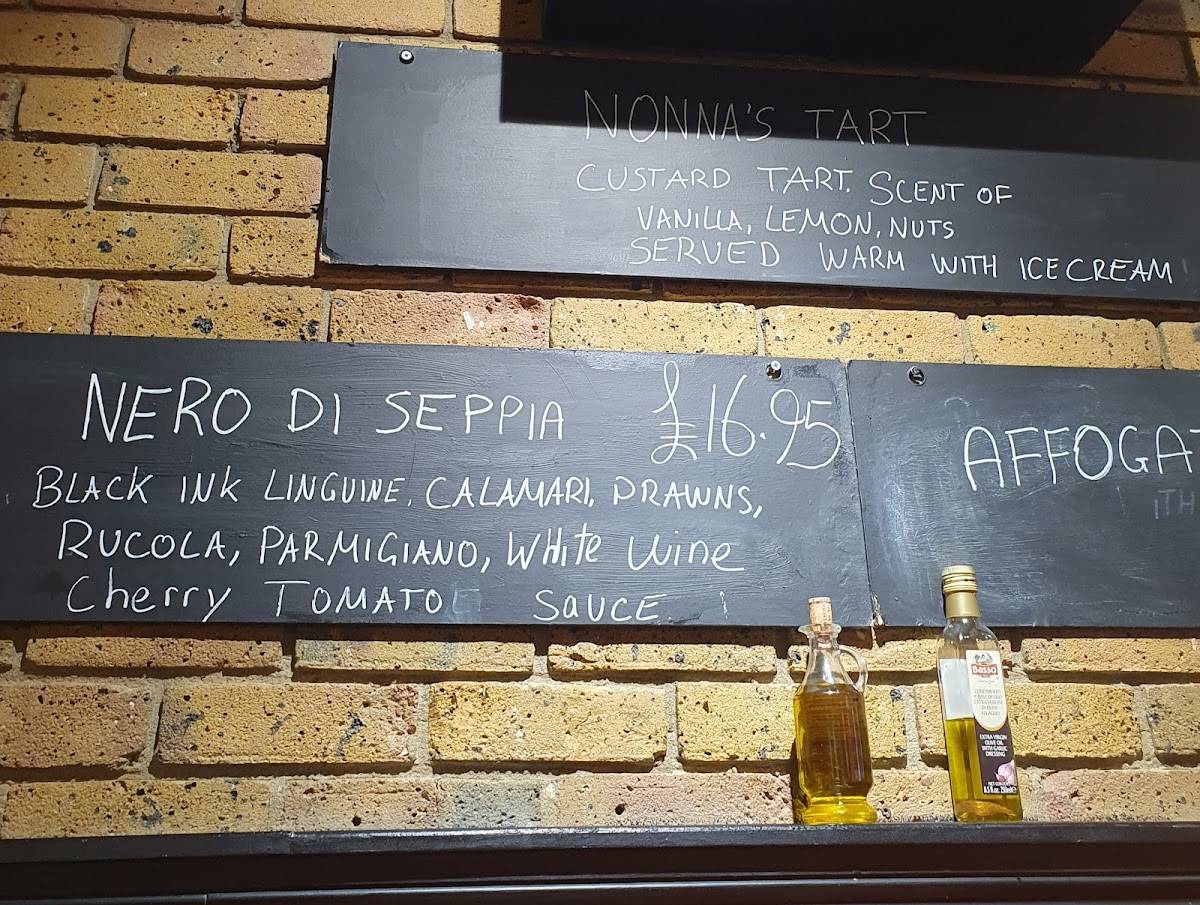 NONNA'S TART
CUSTARD TART. SCENT OF
VANILLA, LEMON, NUTS
SERVED WARM WITH ICE CREAM
NERO DI SEPPIA £16.95
BLACK INK LINGUINE, CALAMARI, PRAWNS,
RUCOLA, PARMIGIANO, White Wine
Cherry TOMATO SAUCE.
AFFOGAT
Basso
CONDIMENTO
A BASE DI OLIO
EXTRA VERGINE
DI OLIVA
ALL'AGLIO
EXTRA VIRGIN
OLIVE OIL
WITH GARLIC
DRESSING
8.5 fl.oz. 250ml e